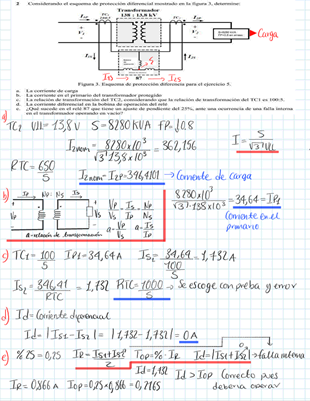 2 Considerando el esquema de protección diferencial mostrado en la figura 3, determine:
Transformador
138 / 13,8 kV
Carga
Figura 3. Esquema de protección diferencia para el ejercicio 5.
a. La corriente de carga
b. La corriente en el primario del transformador protegido
c. La relación de transformación del TC2, considerando que la relación de transformación del TC1 es 100:5.
d. La corriente diferencial en la bobina de operación del relé
e. ¿Qué sucede en el relé 87 que tiene un ajuste de pendiente del 25%, ante una ocurrencia de una falla interna en el transformador operando en vacío?
a)
TC2 Vll = 13,8 V S = 8280 KVA fP = 0.8
I = S / √3 Vll
I2nom = 8280x10³ / √3 13,8x10³ = 362,156
RTC = 650 / 5
I2nom = I2P = 346,4101 → Corriente de carga
b) IP VP : NS Is
Vp / Vs = Is / Ip = Np / Ns
a = Vp / Vs a = Is / Ip
a = relación de transformación
8280x10³ / √3 · 138x10³ = 34,64 = IP1
Corriente en el primario
c) TC1 = 100 / 5 IP1 = 34,64 A IS1 = 34,64 / 100 / 5 = 1,732 A
IS2 = 346,41 / RTC = 1,732 RTC = 1000 / 5 → Se escoge con prueba y error
d) Id = Corriente diferencial
Id = |IS1 - IS2| = |1,732 - 1,732| = 0 A
e) % 25 = 0,25 IR = IS1 + IS2 / 2 Iop = % · IR Id = |IS1 + IS2| → falla interna
Id = 1,732
IR = 0,866 A Iop = 0,25 x 0,866 = 0,2165 Id > Iop Correcto pues debería operar